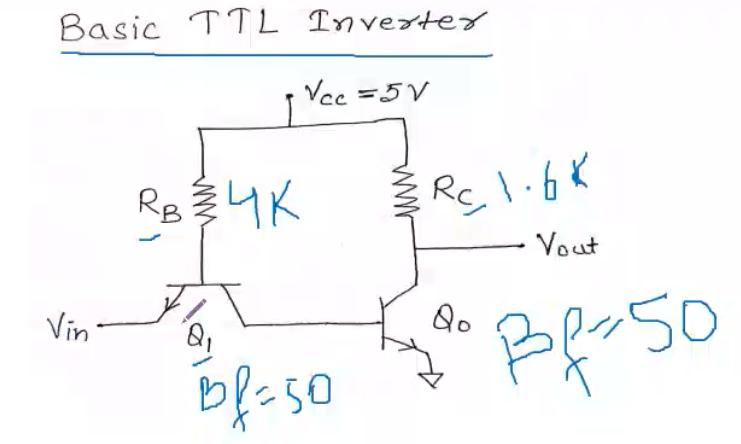 Basic TTL Inverter
Vcc = 5V
RB 4K
Rc 1.6K
Vout
Vin
Q1
Qo
Bf = 50
Bf = 50